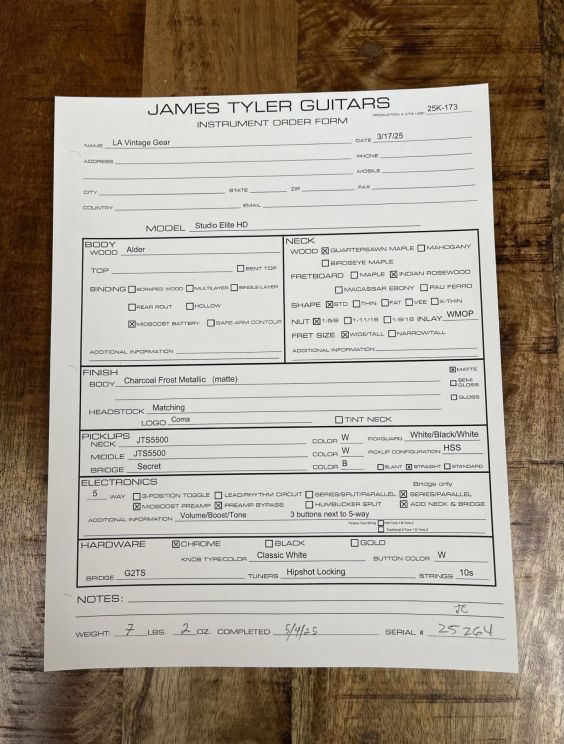 JAMES TYLER GUITARS
INSTRUMENT ORDER FORM
25K-173
NAME LA Vintage Gear DATE 3/17/25
ADDRESS PHONE
MOBILE
CITY STATE ZIP FAX
COUNTRY EMAIL
MODEL Studio Elite HD
BODY
WOOD Alder
TOP BENT TOP
BINDING SCRAPED WOOD MULTILAYER SINGLE-LAYER
REAR ROUT HOLLOW
MIDBOOST BATTERY BARE-ARM CONTOUR
ADDITIONAL INFORMATION
NECK
WOOD QUARTERSAWN MAPLE MAHOGANY
BIRDSEYE MAPLE
FRETBOARD MAPLE INDIAN ROSEWOOD
MACASSAR EBONY PAU FERRO
SHAPE STD THIN FAT VEE X-THIN
NUT 1-5/8 1-11/16 1-9/16 INLAY WMOP
FRET SIZE WIDE/TALL NARROW/TALL
ADDITIONAL INFORMATION
FINISH MATTE
BODY Charcoal Frost Metallic (matte) SEMI GLOSS
GLOSS
HEADSTOCK Matching
LOGO Coma TINT NECK
PICKUPS
NECK JTS5500 COLOR W PICKGUARD White/Black/White
MIDDLE JTS5500 COLOR W PICKUP CONFIGURATION HSS
BRIDGE Secret COLOR B SLANT STRAIGHT STANDARD
ELECTRONICS Bridge only
5 WAY 3-POSITION TOGGLE LEAD/RHYTHM CIRCUIT SERIES/SPLIT/PARALLEL SERIES/PARALLEL
MIDBOOST PREAMP PREAMP BYPASS HUMBUCKER SPLIT ADD NECK & BRIDGE
ADDITIONAL INFORMATION Volume/Boost/Tone 3 buttons next to 5-way
HARDWARE CHROME BLACK GOLD
KNOB TYPE/COLOR Classic White BUTTON COLOR W
BRIDGE G2TS TUNERS Hipshot Locking STRINGS 10s
NOTES:
JC
WEIGHT: 7 LBS. 2 OZ. COMPLETED 5/9/25 SERIAL # 25264